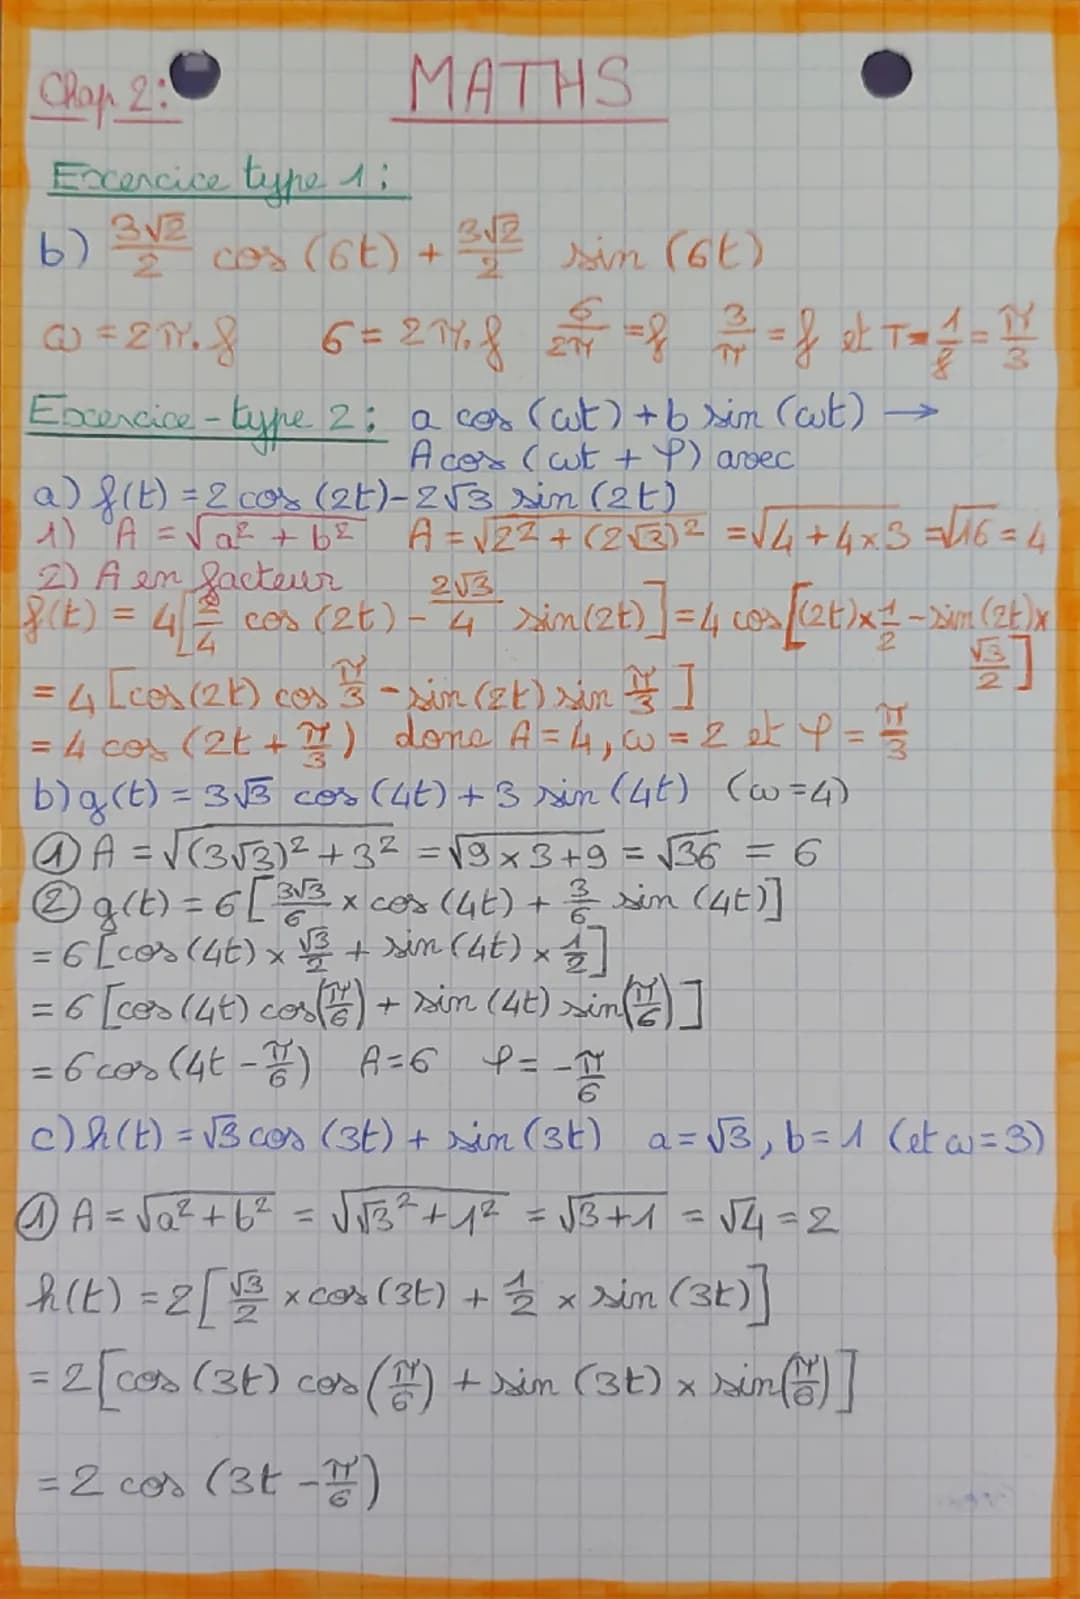 Chap 2: MATHS
Excercice type 1:
b) 3√2/2 cos (6t) + 3√2/2 sin (6t)
ω = 2π.f 6 = 2π.f 6/2π = f 3/π = f et T = 1/f = π/3
Excercice-type 2: a cos (ωt) + b sin (ωt) →
A cos (ωt + φ) avec
a) f(t) = 2 cos (2t) - 2√3 sin (2t)
1) A = √a² + b² A = √2² + (2√3)² = √4 + 4×3 = √16 = 4
2) A en facteur
f(t) = 4[2/4 cos (2t) - 2√3/4 sin(2t)] = 4 cos [(2t)×1/2 - sin (2t)× √3/2]
= 4 [cos(2t) cos π/3 - sin (2t) sin π/3]
= 4 cos (2t + π/3) donc A = 4, ω = 2 et φ = π/3
b) g(t) = 3√3 cos (4t) + 3 sin (4t) (ω = 4)
① A = √(3√3)² + 3² = √9 × 3 + 9 = √36 = 6
② g(t) = 6 [3√3/6 × cos (4t) + 3/6 sin (4t)]
= 6 [cos (4t) × √3/2 + sin (4t) × 1/2]
= 6 [cos (4t) cos(π/6) + sin (4t) sin(π/6)]
= 6 cos (4t - π/6) A = 6 φ = -π/6
c) h(t) = √3 cos (3t) + sin (3t) a = √3, b = 1 (et ω = 3)
① A = √a² + b² = √√3² + 1² = √3+1 = √4 = 2
h(t) = 2 [√3/2 × cos (3t) + 1/2 × sin (3t)]
= 2 [cos (3t) cos (π/6) + sin (3t) × sin(π/6)]
= 2 cos (3t - π/6)